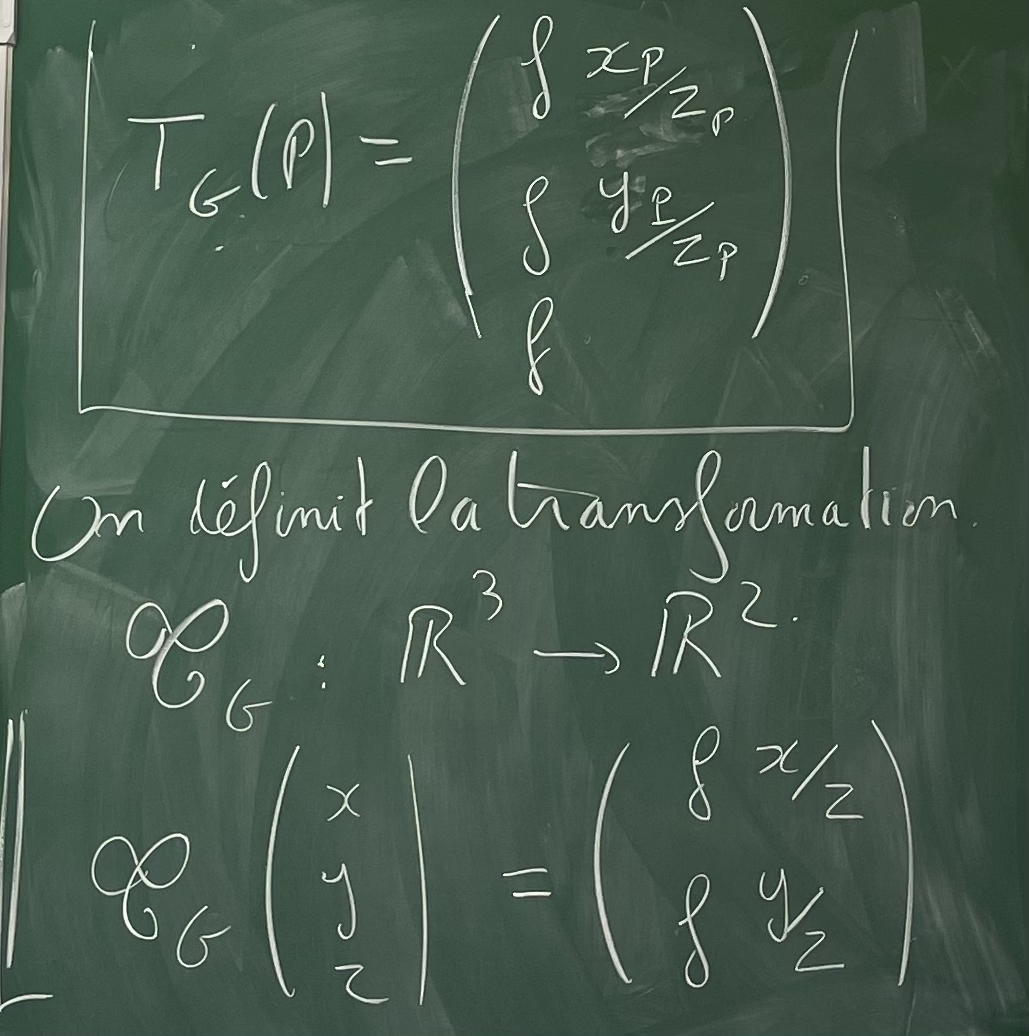 T_G(P) = ( f x_P/z_P
f y_P/z_P
f )
On définit la transformation.
𝒞_G : ℝ³ → ℝ².
𝒞_G ( x y z ) = ( f x/z
f y/z )